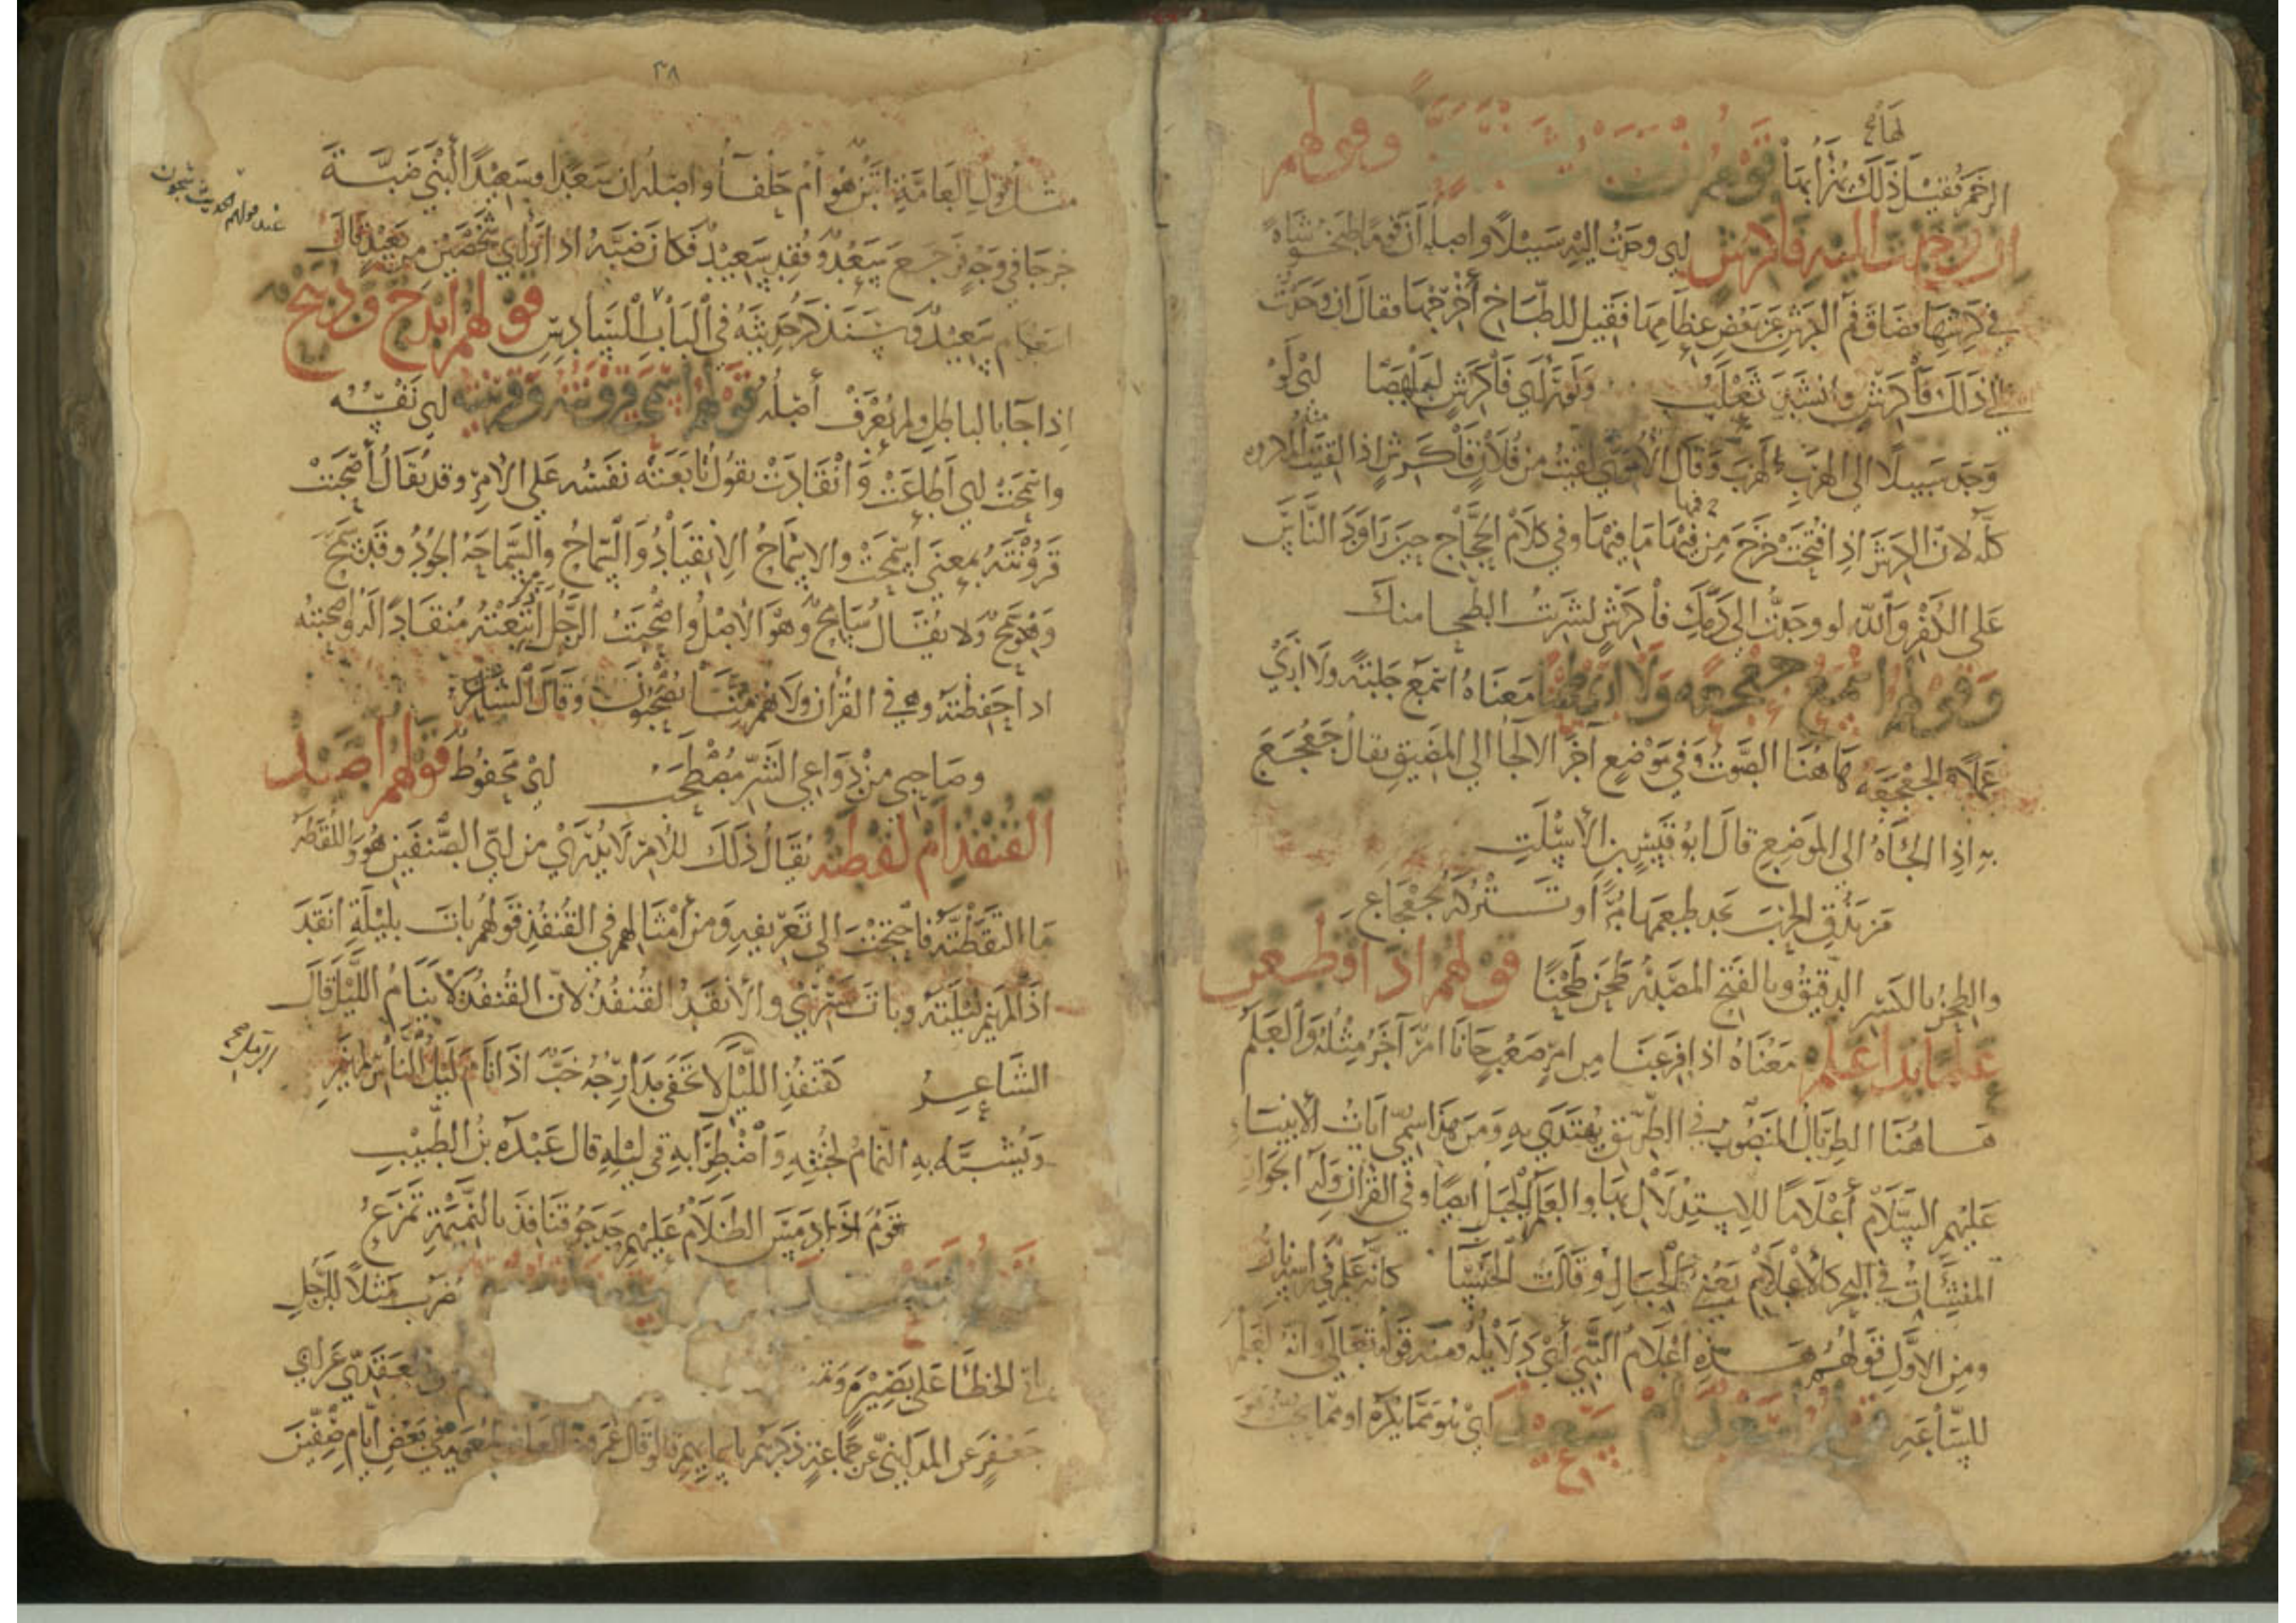 لهما
الرخم فقيل ذلك يهزأ بها قولهم وقولهم
ان وجدت اليه فاكرش اي وجدت اليه سبيلا واصله أن قوما طبخوا شاة
في كرشها فضاق فم الكرش عن بعض عظامها فقيل للطباخ أخرجها فقال ان وجدت
الي ذلك فاكرش وانشد ثعلب ولو رأى فاكرش لبلهصا اي لو
وجد سبيلا الى الهرب لهرب وقال الاصمعي لقيت من فلان فاكرش اذا لقيت المكروه
كله لان الكرش اذا فتحت خرج من فمها ما فيها وفي كلام الحجاج حين راود الناس
على الكفر والله لو وجدت الى دمك فاكرش لشربت البطحا منك
وقولهم اسمع جعجعه ولا ارى طحنا معناه اسمع جلبة ولا ارى
عملا والجعجعه هاهنا الصوت وفي موضع آخر الالجا الى المضيق يقال جعجع
به اذا الجأه الى الموضع قال ابو قيس بن الأسلت
من يذق الحرب يجد طعمها مرا او تتركه بجعجاع
والطحن بالكسر الدقيق وبالفتح المصدر طحن طحنا قولهم اذا قطعن
علما بدا علم معناه اذا فرغنا من امر صعب جانا امر آخر مثله والعلم
هاهنا الطربال المنصوب في الطريق يهتدى به ومن هذا سمي آيات الانبيا
عليهم السلام أعلاما للاستدلال بها والعلم الجبل ايضا وفي القرآن وله الجوار
المنشآت في البحر كالأعلام يعني كالجبال وقالت الخنسا كانه علم في راسه نار
ومن الاول قولهم هذه اعلام النبي أي دلايله ومنه قوله تعالى وانه لعلم
للساعه قولهم اسعد ام سعيد اي هو مما يكره او مما يحب وهو
٣٨
مثل قول العامة اتبن هو ام حلفا واصله ان سعدا وسعيدا ابني ضبة
خرجا في وجه فرجع سعد وفقد سعيد فكان ضبة اذا رأى شخصين من بعيد قال
اسعد ام سعيد وسنذكر حديثه في الباب السادس قولهم ابدح ودبح
عند قولهم الحديث شجون
اذا جا بالباطل ولم يعرف أصله قولهم اسمحت قرونته وقرينته اي نفسه
واسمحت اي اطاعت وانقادت يقول تابعته نفسه على الامر وقد يقال أصحبت
قرونته بمعنى اسمحت والاسماح الانقياد والسماح والسماحه الجود وقد سمح
وهو سمح ولا يقال سامح وهو الاصل واصحبت الرجل اتبعته منقادا له واصحبته
اذا حفظته وهي في القرآن ولا هم منا يصحبون وقال الشاعر
وصاحبي من دواعي الشر مصطحب اي محفوظ قولهم اصل
القنفذ ام لقطه يقال ذلك للامر لا يدرى من اي الصنفين هو واللقطه
ما التقطته فاحتجت الى تعريفه ومن أمثالهم في القنفذ قولهم بات بليلة انقد
اذا لم ينم ليلته وبات يسري والأنقد القنفذ لان القنفذ لا ينام الليل قال
الشاعر كقنفذ الليل لا تخفى مدارجه خب اذا نام ليل الناس لم ينم
ويشبه به النمام لخبثه واضطرابه في ليله قال عبدة بن الطبيب
قوم اذا دمس الظلام عليهم حدجوا قنافذ بالنميمة تمزع
يضرب مثلا للرجل
الخطأ على بصيرة العقدي عن ابي
جعفر عن المدايني عن جماعة ذكرهم باسمايهم قالوا قال عمرو بن العاص لمعوية في بعض ايام صفين